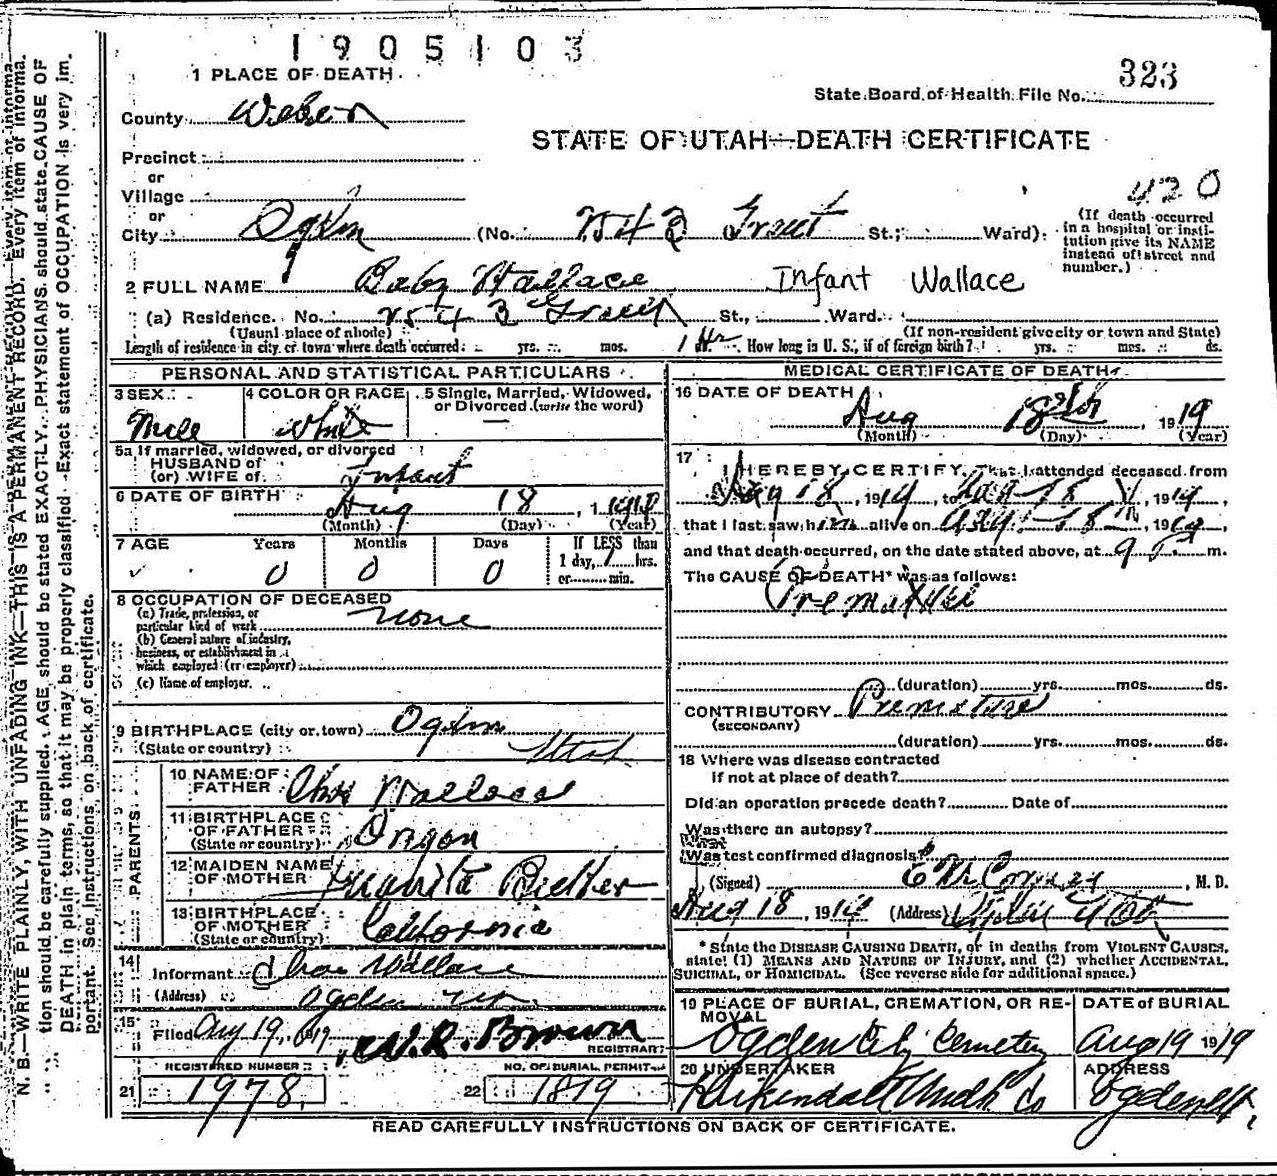 1905103
1 PLACE OF DEATH
323
State Board of Health File No.
County Weber
STATE OF UTAH—DEATH CERTIFICATE
Precinct
or
Village
or
420
City Ogden (No. 2543 Grant St.; Ward)
(If death occurred in a hospital or institution give its NAME instead of street and number.)
2 FULL NAME Baby Wallace Infant Wallace
(a) Residence. No. 2543 Grant St., Ward.
(Usual place of abode) (If non-resident give city or town and State)
Length of residence in city or town where death occurred: yrs. mos. 1 Hr. How long in U. S., if of foreign birth? yrs. mos. ds.
PERSONAL AND STATISTICAL PARTICULARS
3 SEX Male
4 COLOR OR RACE White
5 Single, Married, Widowed, or Divorced (write the word) —
5a If married, widowed, or divorced
HUSBAND of
(or) WIFE of Infant
6 DATE OF BIRTH Aug 18, 1919
(Month) (Day) (Year)
7 AGE Years Months Days If LESS than
0 0 0 1 day, 1 hrs.
or min.
8 OCCUPATION OF DECEASED
(a) Trade, profession, or
particular kind of work none
(b) General nature of industry,
business, or establishment in
which employed (or employer)
(c) Name of employer
9 BIRTHPLACE (city or town) Ogden
(State or country) Utah
PARENTS
10 NAME OF FATHER Chas Wallace
11 BIRTHPLACE OF FATHER (State or country) Oregon
12 MAIDEN NAME OF MOTHER Juanita
13 BIRTHPLACE OF MOTHER (State or country) California
14 Informant Chas Wallace
(Address) Ogden Ut.
15 Filed Aug 19, 1919 W. R. Brown
REGISTRAR
REGISTERED NUMBER NO. OF BURIAL PERMIT
21 1978 22 1819
MEDICAL CERTIFICATE OF DEATH
16 DATE OF DEATH Aug 18th, 1919
(Month) (Day) (Year)
17 I HEREBY CERTIFY, That I attended deceased from
Aug 18, 1919, to Aug 18, 1919,
that I last saw him alive on Aug 18th, 1919,
and that death occurred, on the date stated above, at 9 P. m.
The CAUSE OF DEATH* was as follows:
(duration) yrs. mos. ds.
CONTRIBUTORY Premature
(SECONDARY)
(duration) yrs. mos. ds.
18 Where was disease contracted
if not at place of death?
Did an operation precede death? Date of
Was there an autopsy?
What test confirmed diagnosis?
(Signed) , M. D.
Aug 18, 1919 (Address) Ogden Utah
*State the DISEASE CAUSING DEATH, or in deaths from VIOLENT CAUSES,
state (1) MEANS AND NATURE OF INJURY, and (2) whether ACCIDENTAL,
SUICIDAL, or HOMICIDAL. (See reverse side for additional space.)
19 PLACE OF BURIAL, CREMATION, OR REMOVAL DATE of BURIAL
Ogden City Cemetery Aug 19 1919
20 UNDERTAKER ADDRESS
Kirkendall Undk Co Ogden Ut.
READ CAREFULLY INSTRUCTIONS ON BACK OF CERTIFICATE.
N. B.—WRITE PLAINLY, WITH UNFADING INK—THIS IS A PERMANENT RECORD. Every item of informa-
tion should be carefully supplied. AGE should be stated EXACTLY. PHYSICIANS should state CAUSE OF
DEATH in plain terms, so that it may be properly classified. Exact statement of OCCUPATION is very im-
portant. See instructions on back of certificate.